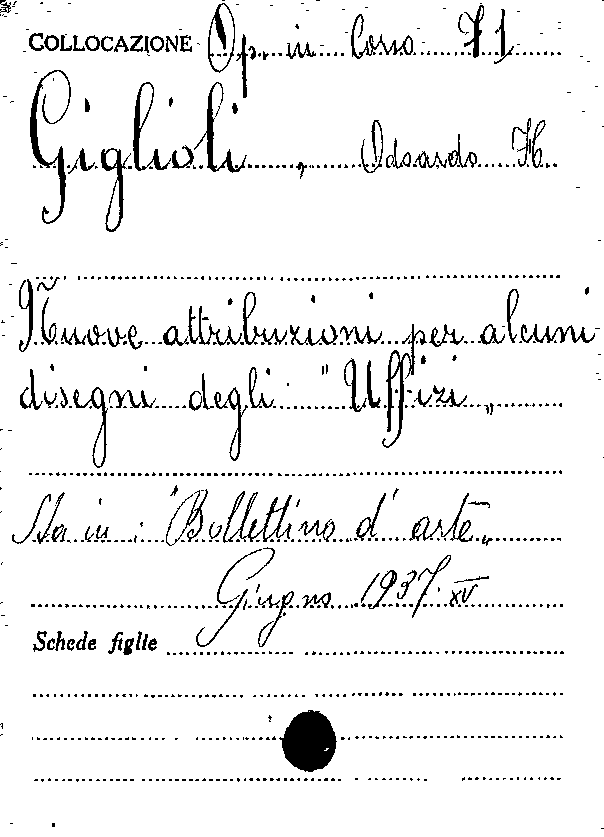 COLLOCAZIONE Op. in Corso 71
Giglioli, Odoardo H.
Nuove attribuzioni per alcuni
disegni degli "Uffizi„
Sta in: "Bollettino d'arte„
Giugno 1937. XV
Schede figlie